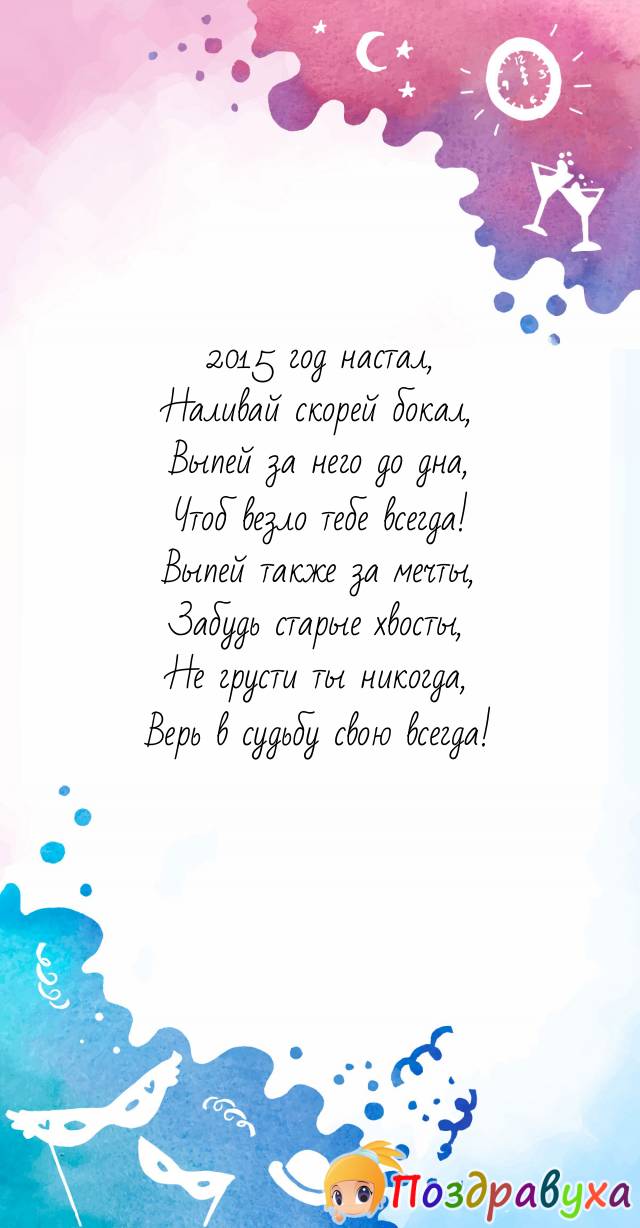 12
3
6
9
2015 год настал,
Наливай скорей бокал,
Выпей за него до дна,
Чтоб везло тебе всегда!
Выпей также за мечты,
Забудь старые хвосты,
Не грусти ты никогда,
Верь в судьбу свою всегда!
Поздравуха